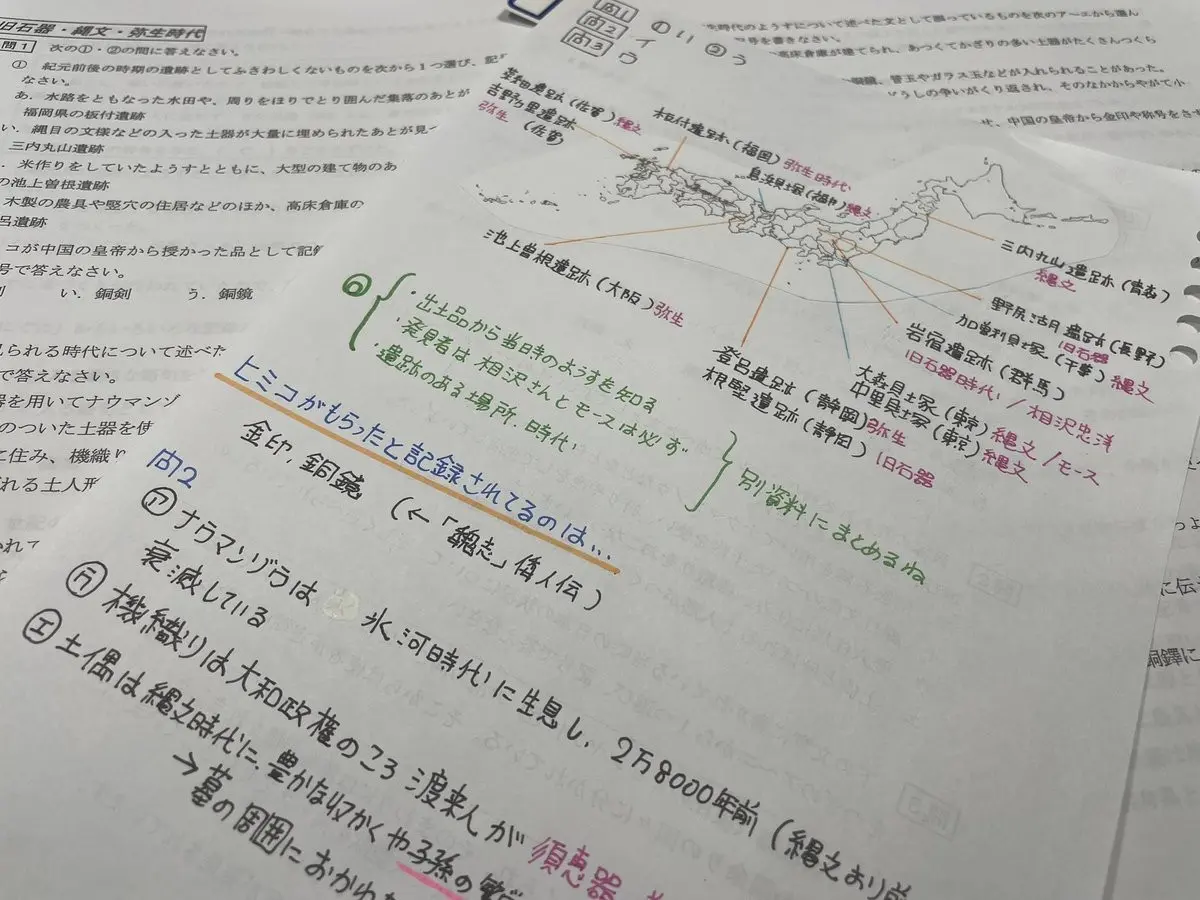 旧石器・縄文・弥生時代
問1 次の①・②の問に答えなさい。
① 紀元前後の時期の遺跡としてふさわしくないものを次から1つ選び、記
なさい。
あ．水路をともなった水田や、周りをほりでとり囲んだ集落のあとが
福岡県の板付遺跡
い．縄目の文様などの入った土器が大量に埋められたあとが見
三内丸山遺跡
．米作りをしていたようすとともに、大型の建て物のあ
の池上曽根遺跡
木製の農具や竪穴の住居などのほか、高床倉庫の
呂遺跡
コが中国の皇帝から授かった品として記
号で答えなさい。
い．銅剣 う．銅鏡
見られる時代について述べた
で答えなさい。
器を用いてナウマンゾ
のついた土器を使
に住み、機織り
れる土人形
問1 ① い ② う
問2 イ
問3 ウ
生時代のようすについて述べた文として誤っているものを次のア～エから選ん
号を書きなさい。
高床倉庫が建てられ、あつくてかざりの多い土器がたくさんつくら
銅鏡、管玉やガラス玉などが入れられることがあった。
うしの争いがくり返され、そのなかからやがて小
せ、中国の皇帝から金印や称号をさず
菜畑遺跡（佐賀）縄文
吉野ヶ里遺跡
弥生（佐賀）
板付遺跡（福岡）弥生時代
鳥浜貝塚（福井）縄文
池上曽根遺跡（大阪）弥生
三内丸山遺跡（青森）
縄文
野尻湖遺跡（長野）
旧石器
加曽利貝塚（千葉）縄文
岩宿遺跡（群馬）
旧石器時代／相沢忠洋
大森貝塚（東京）縄文／モース
中里貝塚（東京）縄文
登呂遺跡（静岡）弥生
根堅遺跡（静岡）旧石器
・出土品から当時のようすを知る
・発見者は相沢さんとモースは必ず
・遺跡のある場所、時代
別資料にまとめるね
ヒミコがもらったと記録されてるのは…
金印、銅鏡 （←「魏志」倭人伝）
問2
㋐ ナウマンゾウは 氷河時代に生息し、2万8000年前（縄文より前
衰滅している
㋒ 機織りは大和政権のころ渡来人が 須恵器
㋓ 土偶は縄文時代に、豊かな収かくや子孫の繁
→墓の周囲におかれた
に伝
銅鐸に